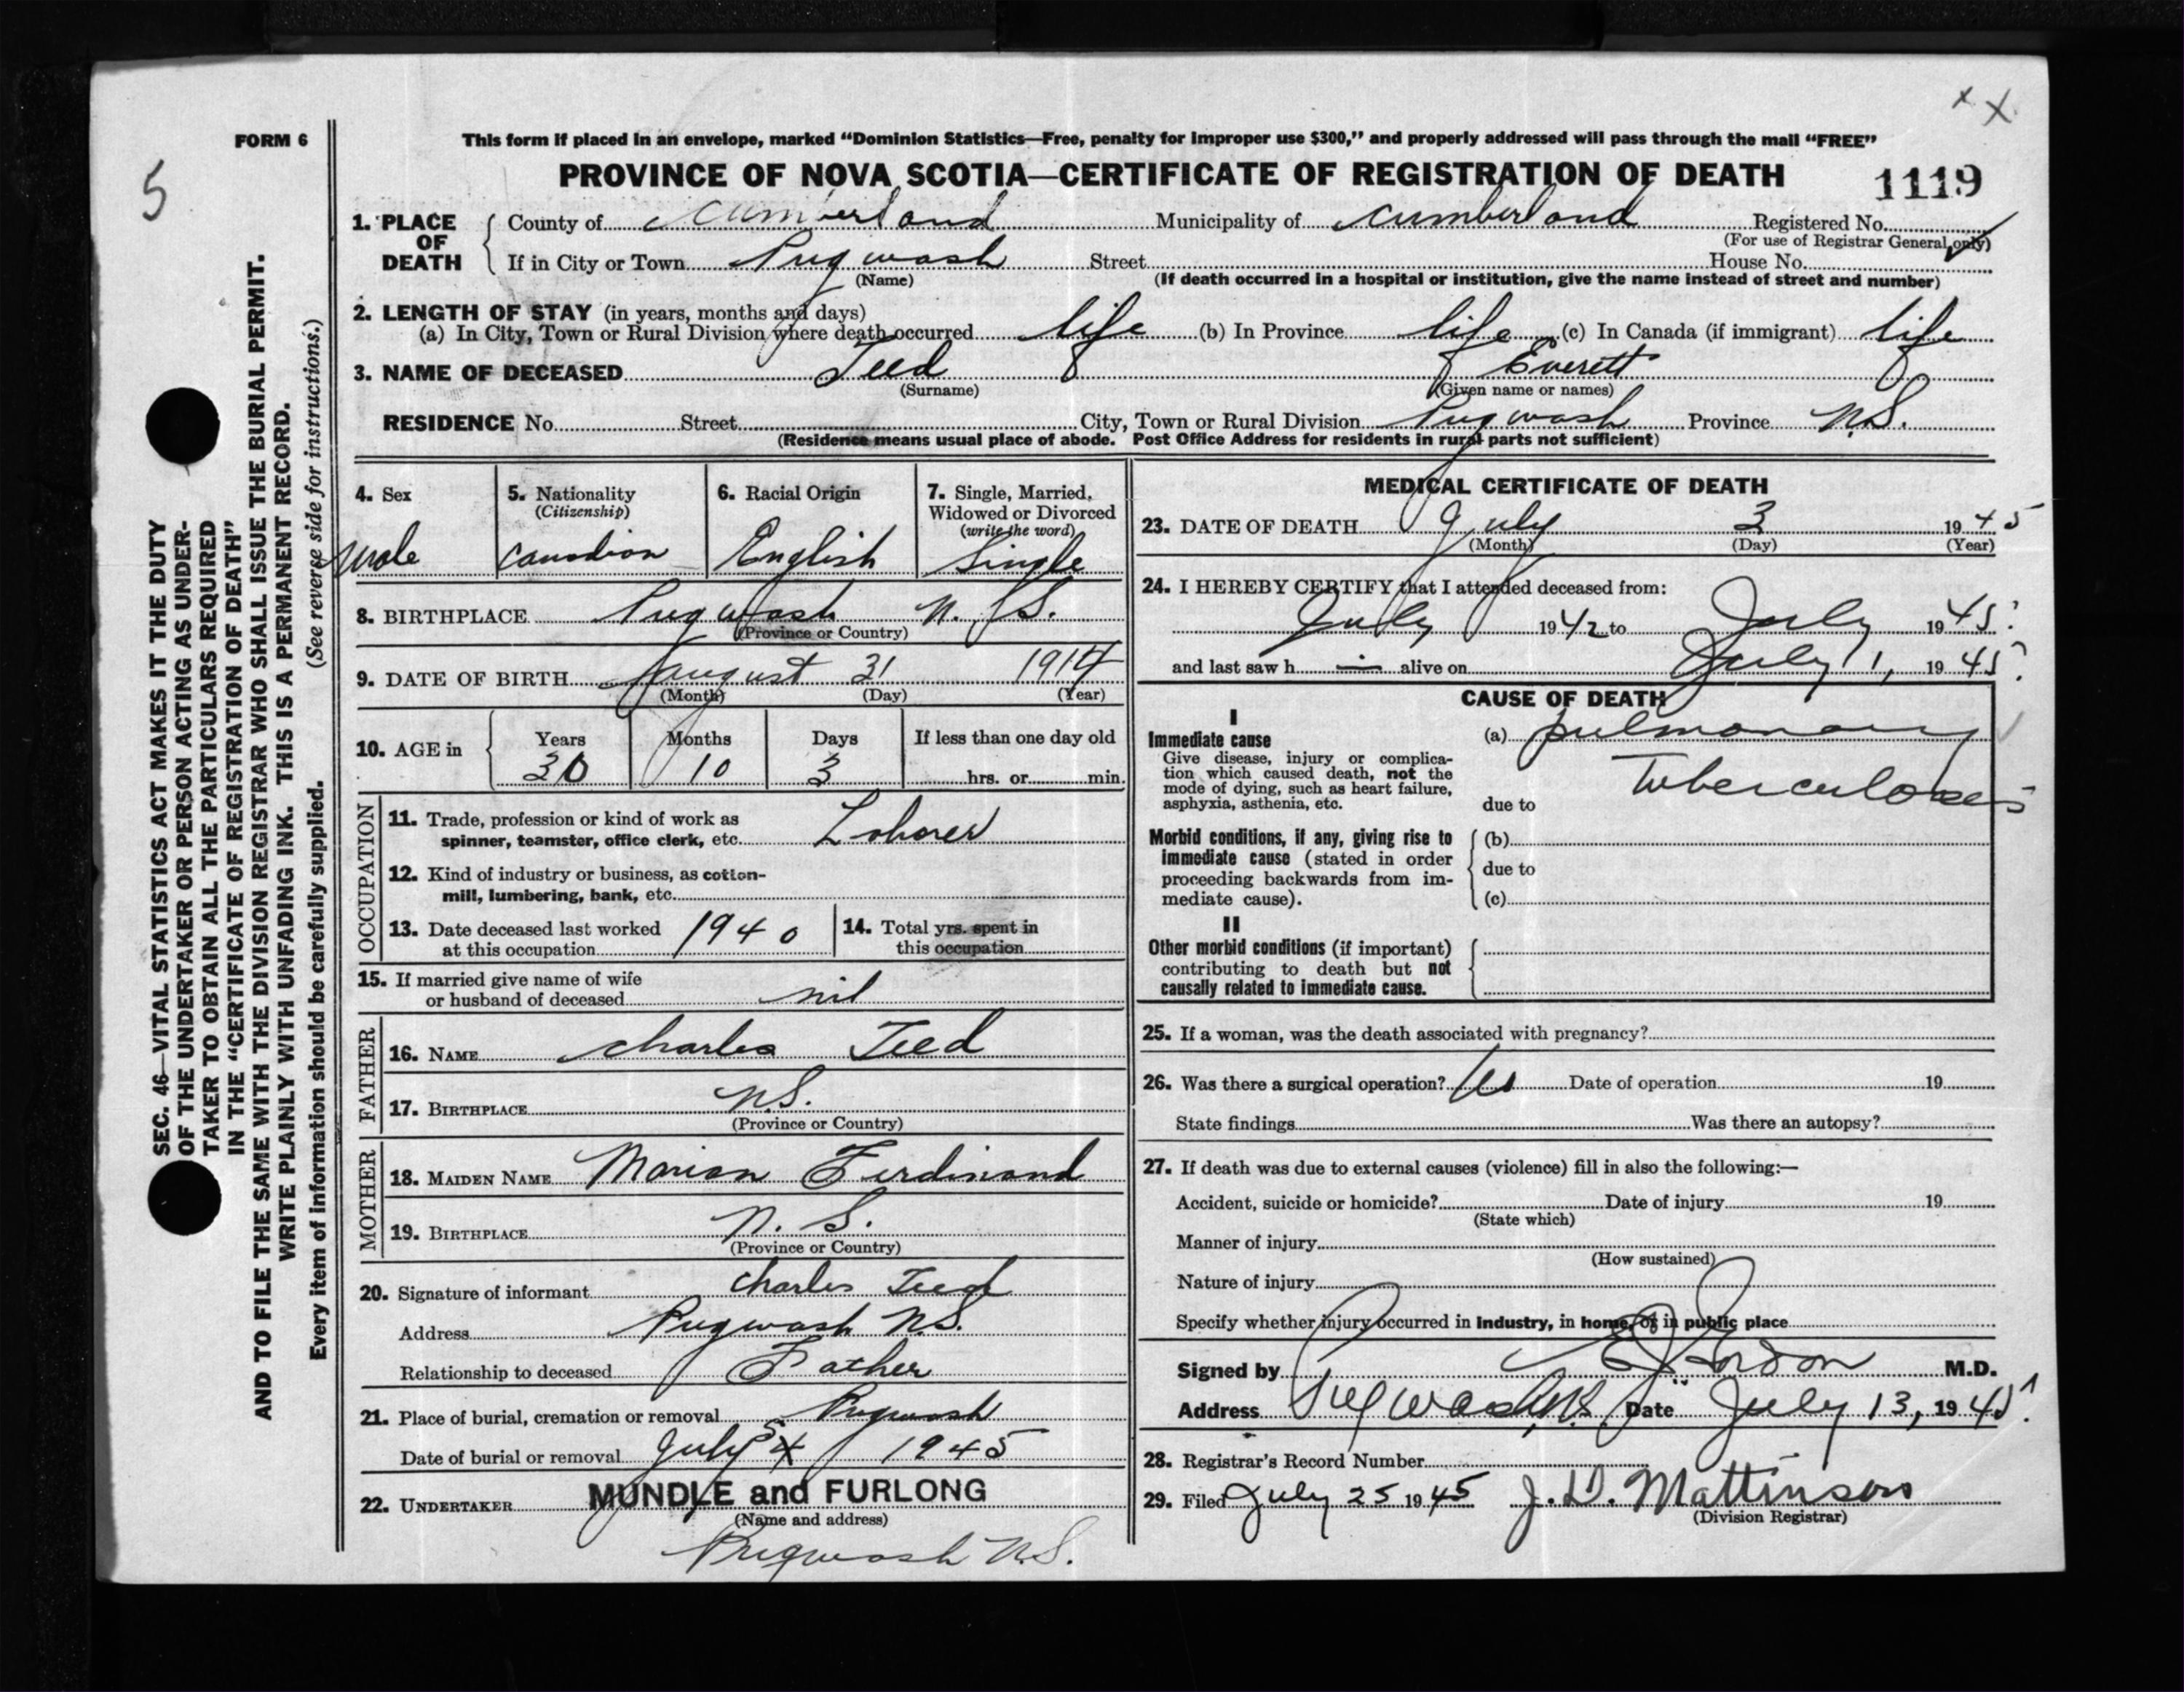 x X
5
FORM 6
This form if placed in an envelope, marked "Dominion Statistics—Free, penalty for improper use $300," and properly addressed will pass through the mail "FREE"
PROVINCE OF NOVA SCOTIA—CERTIFICATE OF REGISTRATION OF DEATH
1119
1. PLACE OF DEATH County of Cumberland Municipality of Cumberland Registered No.
(For use of Registrar General only)
If in City or Town Pugwash Street House No.
(Name) (If death occurred in a hospital or institution, give the name instead of street and number)
2. LENGTH OF STAY (in years, months and days)
(a) In City, Town or Rural Division where death occurred life (b) In Province life (c) In Canada (if immigrant) life
3. NAME OF DECEASED Teed Everett
(Surname) (Given name or names)
RESIDENCE No. Street City, Town or Rural Division Pugwash Province N.S.
(Residence means usual place of abode. Post Office Address for residents in rural parts not sufficient)
4. Sex
male
5. Nationality
(Citizenship)
Canadian
6. Racial Origin
English
7. Single, Married, Widowed or Divorced
(write the word)
Single
8. BIRTHPLACE Pugwash N. S.
(Province or Country)
9. DATE OF BIRTH August 31 1914
(Month) (Day) (Year)
10. AGE in Years Months Days If less than one day old
30 10 3 hrs. or min.
OCCUPATION
11. Trade, profession or kind of work as
spinner, teamster, office clerk, etc. Laborer
12. Kind of industry or business, as cotton-
mill, lumbering, bank, etc.
13. Date deceased last worked
at this occupation 1940
14. Total yrs. spent in
this occupation
15. If married give name of wife
or husband of deceased nil
FATHER
16. NAME Charles Teed
17. BIRTHPLACE N.S.
(Province or Country)
MOTHER
18. MAIDEN NAME Marian Ferdinand
19. BIRTHPLACE N. S.
(Province or Country)
20. Signature of informant Charles Teed
Address Pugwash N.S.
Relationship to deceased Father
21. Place of burial, cremation or removal Pugwash
Date of burial or removal July 5 1945
22. UNDERTAKER MUNDLE and FURLONG
(Name and address)
Pugwash N.S.
MEDICAL CERTIFICATE OF DEATH
23. DATE OF DEATH July 3 1945
(Month) (Day) (Year)
24. I HEREBY CERTIFY that I attended deceased from:
July 1942 to July 1945
and last saw h im alive on July 1, 1945
CAUSE OF DEATH
I
Immediate cause
Give disease, injury or complica-
tion which caused death, not the
mode of dying, such as heart failure,
asphyxia, asthenia, etc.
(a) pulmonary
Tuberculosis
due to
Morbid conditions, if any, giving rise to
immediate cause (stated in order
proceeding backwards from im-
mediate cause).
(b)
due to
(c)
II
Other morbid conditions (if important)
contributing to death but not
causally related to immediate cause.
25. If a woman, was the death associated with pregnancy?
26. Was there a surgical operation? No Date of operation 19
State findings Was there an autopsy?
27. If death was due to external causes (violence) fill in also the following:—
Accident, suicide or homicide? Date of injury 19
(State which)
Manner of injury
(How sustained)
Nature of injury
Specify whether injury occurred in industry, in home, or in public place
Signed by Gordon M.D.
Address Pugwash, N.S. Date July 13, 1945
28. Registrar's Record Number
29. Filed July 25 1945 J. D. Mattinson
(Division Registrar)
SEC. 46—VITAL STATISTICS ACT MAKES IT THE DUTY
OF THE UNDERTAKER OR PERSON ACTING AS UNDER-
TAKER TO OBTAIN ALL THE PARTICULARS REQUIRED
IN THE "CERTIFICATE OF REGISTRATION OF DEATH"
AND TO FILE THE SAME WITH THE DIVISION REGISTRAR WHO SHALL ISSUE THE BURIAL PERMIT.
WRITE PLAINLY WITH UNFADING INK. THIS IS A PERMANENT RECORD.
Every item of information should be carefully supplied. (See reverse side for instructions.)